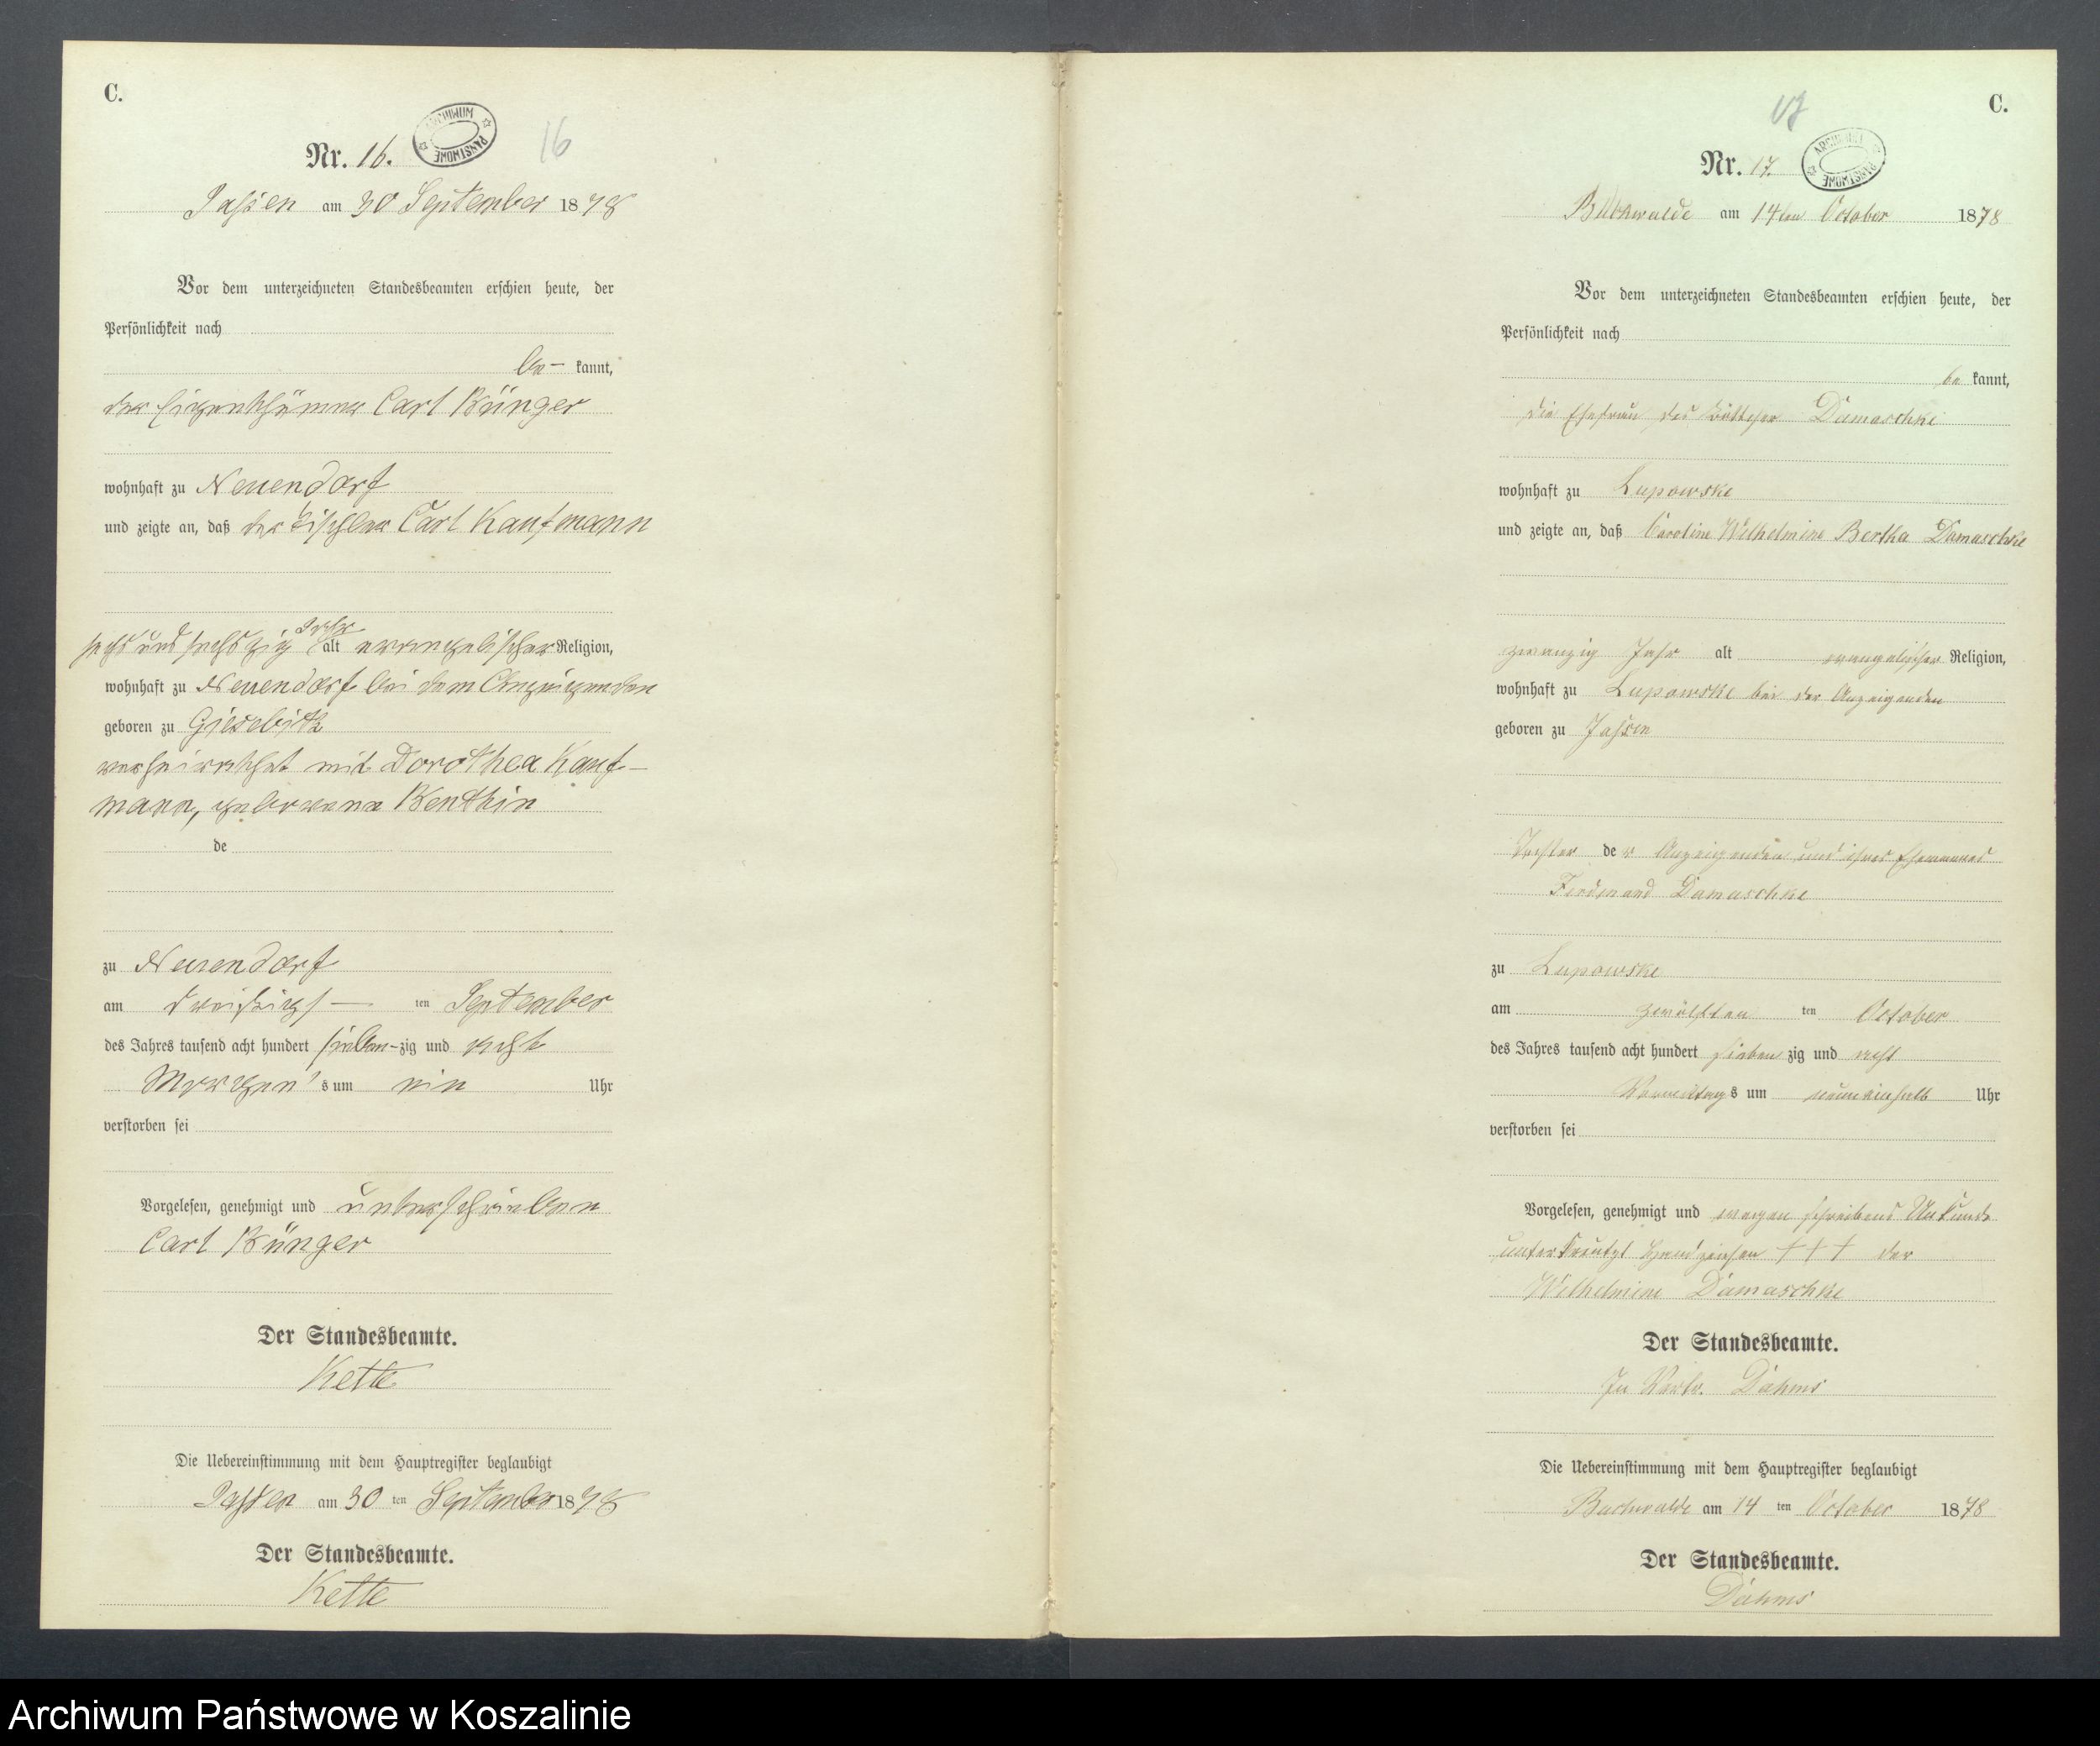 C.
Nr. 16.
ARCHIWUM PAŃSTWOWE
16
Jassen am 30 September 1878
Vor dem unterzeichneten Standesbeamten erschien heute, der
Persönlichkeit nach
be- kannt,
der Eigenthümer Carl Bünger
wohnhaft zu Neuendorf
und zeigte an, daß der Tischler Carl Kaufmann
sechs und sechszig Jahr alt evangelischer Religion,
wohnhaft zu Neuendorf bei dem Anzeigenden
geboren zu Giesebitz
verheirathet mit Dorothea Kauf-
mann, geborene Benthin
de
zu Neuendorf
am dreißigs- ten September
des Jahres tausend acht hundert sieben-zig und acht
Morgen's um ein Uhr
verstorben sei
Vorgelesen, genehmigt und unterschrieben
Carl Bünger
Der Standesbeamte.
Kette
Die Uebereinstimmung mit dem Hauptregister beglaubigt
Jassen am 30 ten September 1878
Der Standesbeamte.
Kette
C.
17
Nr. 17.
ARCHIWUM PAŃSTWOWE
Buchwalde am 14ten October 1878
Vor dem unterzeichneten Standesbeamten erschien heute, der
Persönlichkeit nach
be kannt,
die Ehefrau des Böttcher Damaschke
wohnhaft zu Lupowske
und zeigte an, daß Caroline Wilhelmine Bertha Damaschke
zwanzig Jahr alt evangelischer Religion,
wohnhaft zu Lupowske bei der Anzeigenden
geboren zu Jassen
Tochter der Anzeigenden und ihres Ehemannes
Ferdinand Damaschke
zu Lupowske
am zwölften ten October
des Jahres tausend acht hundert sieben zig und acht
Vormittags um neuneinhalb Uhr
verstorben sei
Vorgelesen, genehmigt und wegen schreibens Unkunde
unterkreutzt Handzeichen +++ der
Wilhelmine Damaschke
Der Standesbeamte.
In Vertr. Dahms
Die Uebereinstimmung mit dem Hauptregister beglaubigt
Buchwalde am 14 ten October 1878
Der Standesbeamte.
Dahms
Archiwum Państwowe w Koszalinie